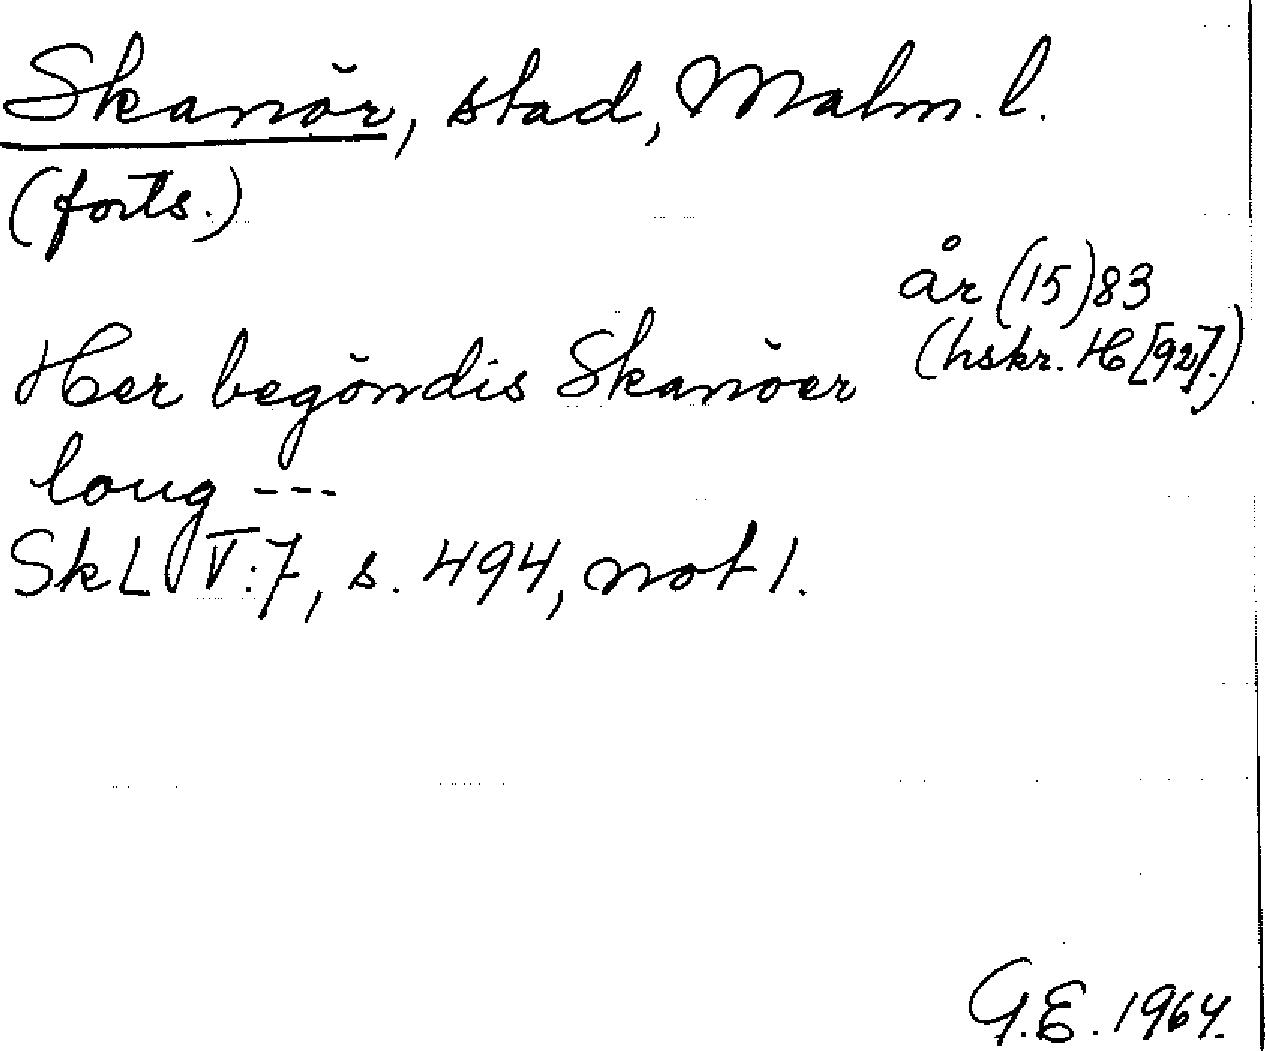 Skanör, stad, Malm. l.
(forts.)
år (15)83
(hskr. H [92].)
Her begöndis Skanöer
loug ---
SkL V:7, s. 494, not 1.
G.E. 1964.